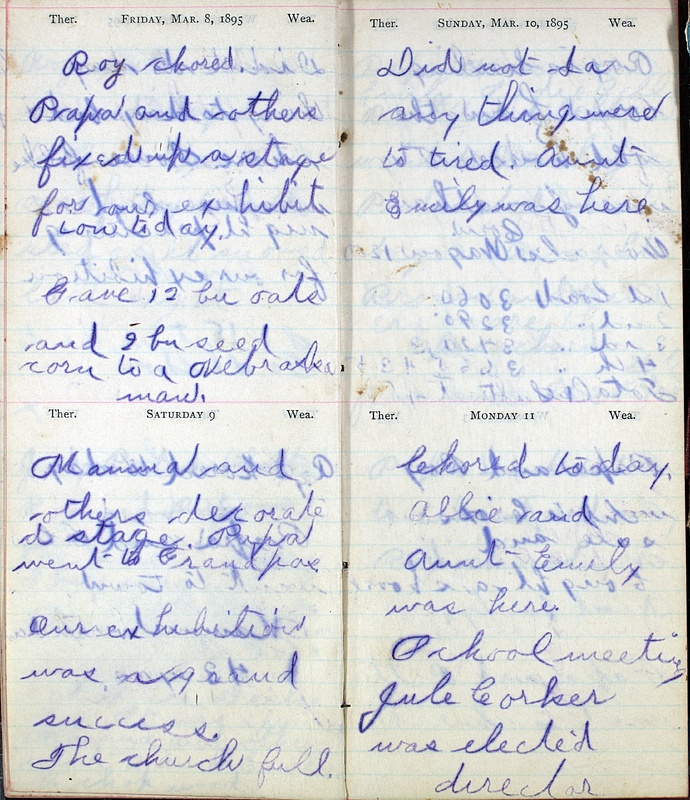 Ther. FRIDAY, MAR. 8, 1895 Wea.
Roy chored.
Papa and others
fixed up a stage
for our exhibit
ion today.
Gave 12 bu oats
and 2 bu seed
corn to a Nebraska
man.
Ther. SATURDAY 9 Wea.
Mamma and
others decorate
d stage. Papa
went to Grandpas
Our exhibition
was a grand
success.
The church full.
Ther. SUNDAY, MAR. 10, 1895 Wea.
Did not do
any thing were
to tired. Aunt
Emily was here.
Ther. MONDAY 11 Wea.
Chored today.
Abbie and
Aunt Emily
was here.
School meeting
Jule Corker
was elected
director